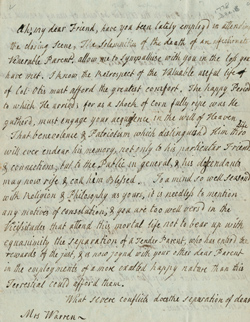 Ah my dear Friend, have you been lately employed in attending
the closing Scene, The Solemnities of the death of an affectionate
Venerable Parent, allow me to Sympathise with you in the Loss you
have met. I know the retrospect of the Valuable useful life
of Col. Otis must afford the greatest comfort. The happy Period
to which He arrived, for as a Shock of Corn fully ripe was He
gathered, must engage your acquiescence in the will of Heaven
That benevolence & Patriotism which distinguished Him thro' life
will ever endear his memory, not only to his particular Friends
& connections, but to the Public in general, & his descendants
may now rise, & call him Blessed. To a mind so well seasoned
with Religion & Philosophy as yours, it is needless to mention
any motives of consolation, you are too well versed in the
Vicissitudes that attend this mortal life not to bear up with
equanimity the Separation of a Tender Parent, who has entered the
rewards of the just, & is now joyned with your other dear Parent
in the employments of a more exalted happy nature than this
Terrestrial could afford them.
What severe conflicts does the separation of dear
Mrs Warren